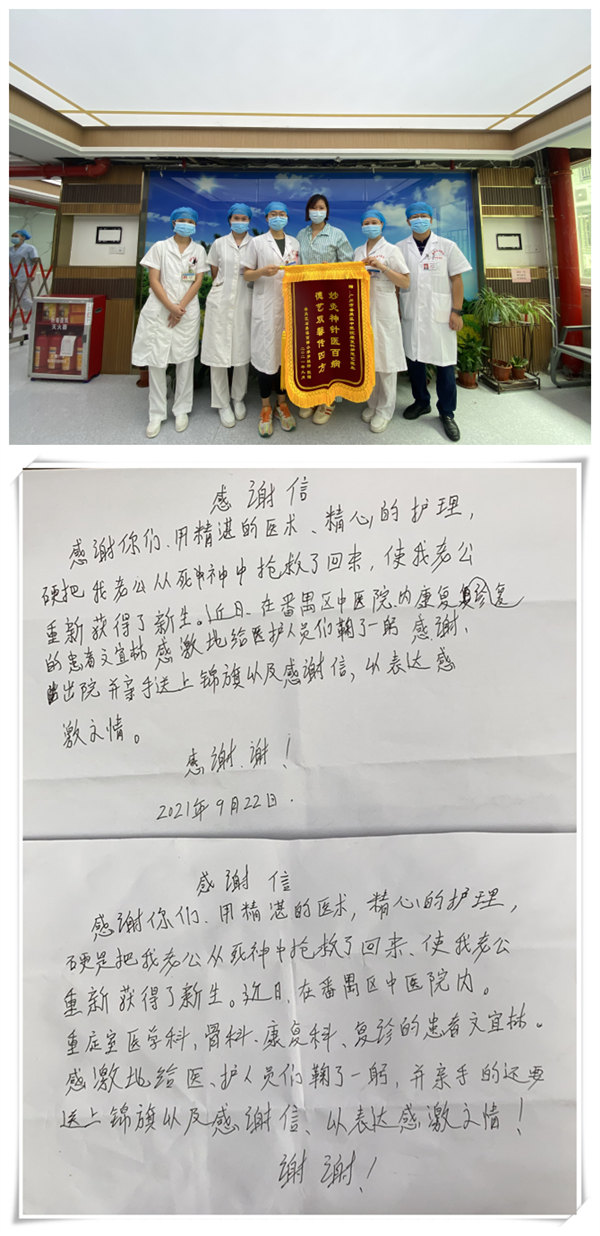 消防器材
灭火器
妙灸神针医百病
德艺双馨传四方
感谢信
感谢你们、用精湛的医术、精心的护理，
硬把我老公从死神中抢救了回来，使我老公
重新获得了新生。近日、在番禺区中医院、内康复复
的患者文宜林感激地给医护人员们鞠了一躬 感谢、
出院并亲手送上锦旗以及感谢信，以表达感
激之情。
感谢、谢！
2021年9月22日.
感谢信
感谢你们、用精湛的医术，精心的护理，
硬是把我老公从死神中抢救了回来、使我老公
重新获得了新生。近日、在番禺区中医院内。
重症室医学科，骨科、康复科、复诊的患者文宜林。
感激地给医、护人员们鞠了一躬，并亲手的还要
送上锦旗以及感谢信、以表达感激之情！
谢谢！